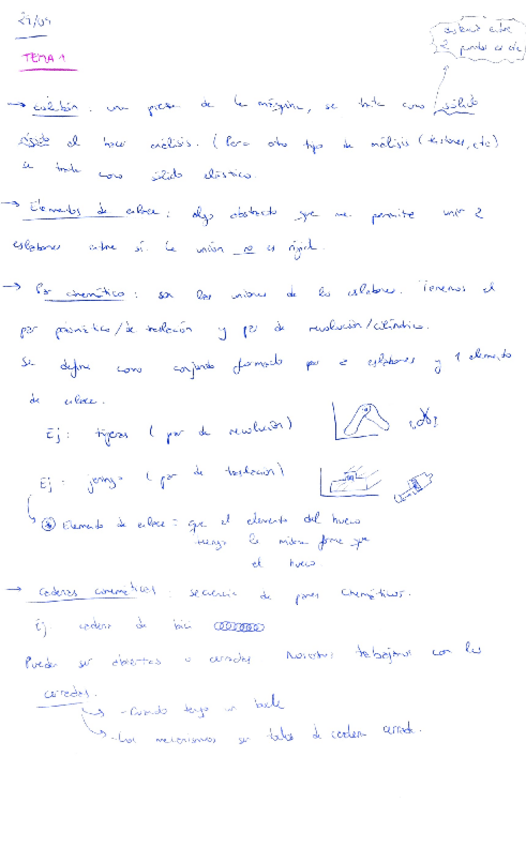 29/09
TEMA 1
distancia entre
2 puntos es cte
→ eslabón: una pieza de la máquina, se trata como sólido
rígido al hacer análisis. (Para otro tipo de análisis (tensiones, etc)
se trata como sólido elástico.
→ Elementos de enlace: algo abstracto que me permite unir 2
eslabones entre sí. La unión no es rígida.
→ Par cinemático: son las uniones de los eslabones. Tenemos el
par prismático/de traslación y par de revolución/cilíndrico.
Se define como conjunto formado por 2 eslabones y 1 elemento
de enlace.
Ej: tijeras (par de revolución)
Ej: jeringa (par de traslación)
Elemento de enlace: que el elemento del hueco
tenga la misma forma que
el hueco.
→ Cadenas cinemáticas: secuencia de pares cinemáticos.
Ej: cadena de bici
Pueden ser abiertas o cerradas. Nosotros trabajamos con las
cerradas.
- Cuando tengo un bucle
- Los mecanismos son todos de cadena cerrada.